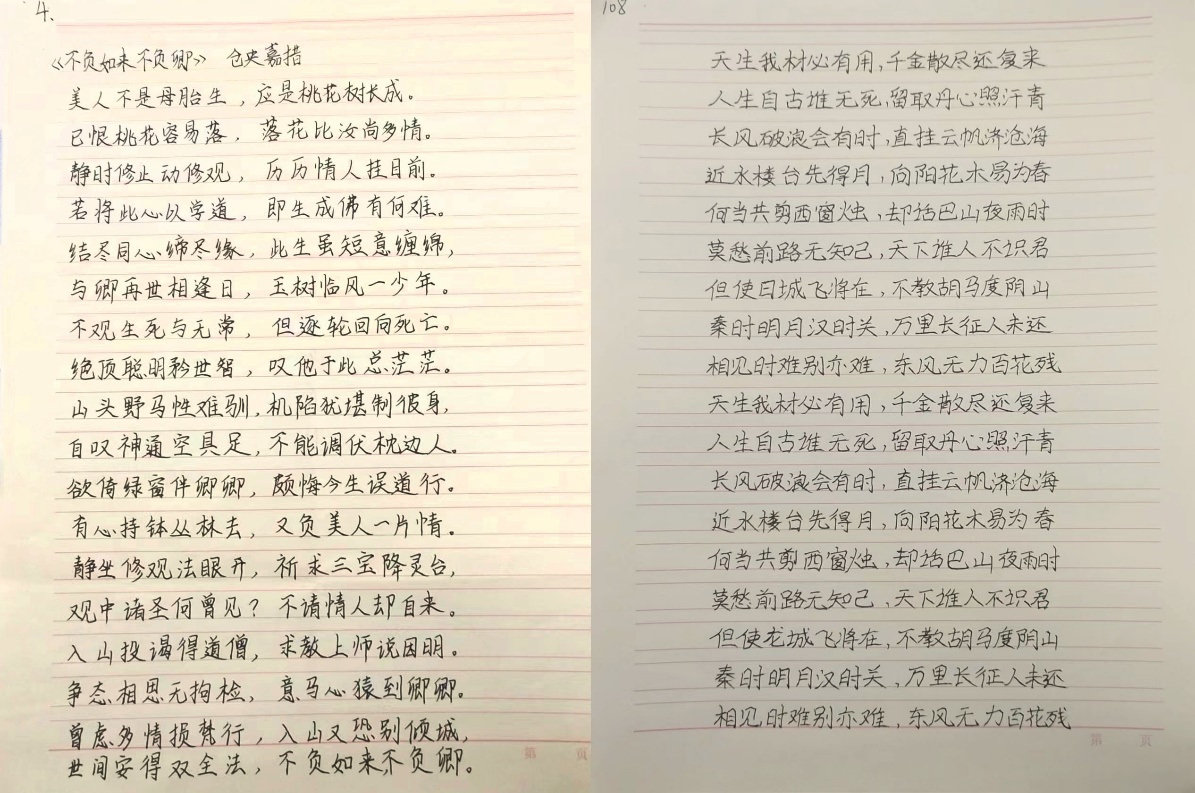 4.
《不负如来不负卿》 仓央嘉措
美人不是母胎生，应是桃花树长成。
已恨桃花容易落，落花比汝尚多情。
静时修止动修观，历历情人挂目前。
若将此心以学道，即生成佛有何难。
结尽同心缔尽缘，此生虽短意缠绵，
与卿再世相逢日，玉树临风一少年。
不观生死与无常，但逐轮回向死亡。
绝顶聪明矜世智，叹他于此总茫茫。
山头野马性难驯，机陷犹堪制彼身，
自叹神通空具足，不能调伏枕边人。
欲倚绿窗伴卿卿，颇悔今生误道行。
有心持钵丛林去，又负美人一片情。
静坐修观法眼开，祈求三宝降灵台，
观中诸圣何曾见？不请情人却自来。
入山投谒得道僧，求教上师说因明。
争态相思无拘检，意马心猿到卿卿。
曾虑多情损梵行，入山又恐别倾城，
世间安得双全法，不负如来不负卿。
第 页
108
天生我材必有用，千金散尽还复来
人生自古谁无死，留取丹心照汗青
长风破浪会有时，直挂云帆济沧海
近水楼台先得月，向阳花木易为春
何当共剪西窗烛，却话巴山夜雨时
莫愁前路无知己，天下谁人不识君
但使日城飞将在，不教胡马度阴山
秦时明月汉时关，万里长征人未还
相见时难别亦难，东风无力百花残
天生我材必有用，千金散尽还复来
人生自古谁无死，留取丹心照汗青
长风破浪会有时，直挂云帆济沧海
近水楼台先得月，向阳花木易为春
何当共剪西窗烛，却话巴山夜雨时
莫愁前路无知己，天下谁人不识君
但使龙城飞将在，不教胡马度阴山
秦时明月汉时关，万里长征人未还
相见时难别亦难，东风无力百花残
第 页